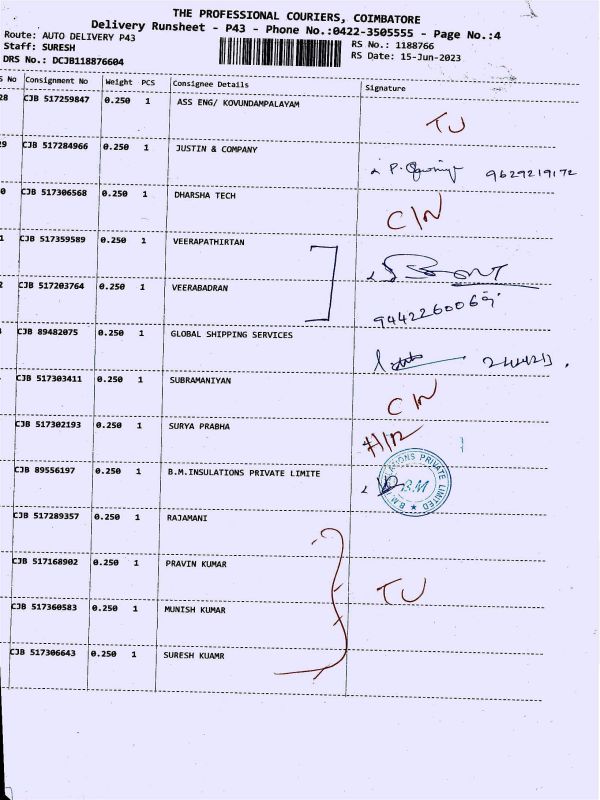 THE PROFESSIONAL COURIERS, COIMBATORE
Delivery Runsheet - P43 - Phone No.:0422-3505555 - Page No.:4
Route: AUTO DELIVERY P43
RS No.: 1188766
Staff: SURESH
RS Date: 15-Jun-2023
DRS No.: DCJB118876604
S No Consignment No Weight PCS Consignee Details Signature
28 CJB 517259847 0.250 1 ASS ENG/ KOVUNDAMPALAYAM
TU
29 CJB 517284966 0.250 1 JUSTIN & COMPANY
P. 9629219172
0 CJB 517306568 0.250 1 DHARSHA TECH
C/N
1 CJB 517359589 0.250 1 VEERAPATHIRTAN
2 CJB 517203764 0.250 1 VEERABADRAN
9442260069
CJB 89482075 0.250 1 GLOBAL SHIPPING SERVICES
CJB 517303411 0.250 1 SUBRAMANIYAN
C/N
CJB 517302193 0.250 1 SURYA PRABHA
CJB 89556197 0.250 1 B.M.INSULATIONS PRIVATE LIMITE
B.M
CJB 517289357 0.250 1 RAJAMANI
CJB 517168902 0.250 1 PRAVIN KUMAR
TU
CJB 517360583 0.250 1 MUNISH KUMAR
CJB 517306643 0.250 1 SURESH KUAMR